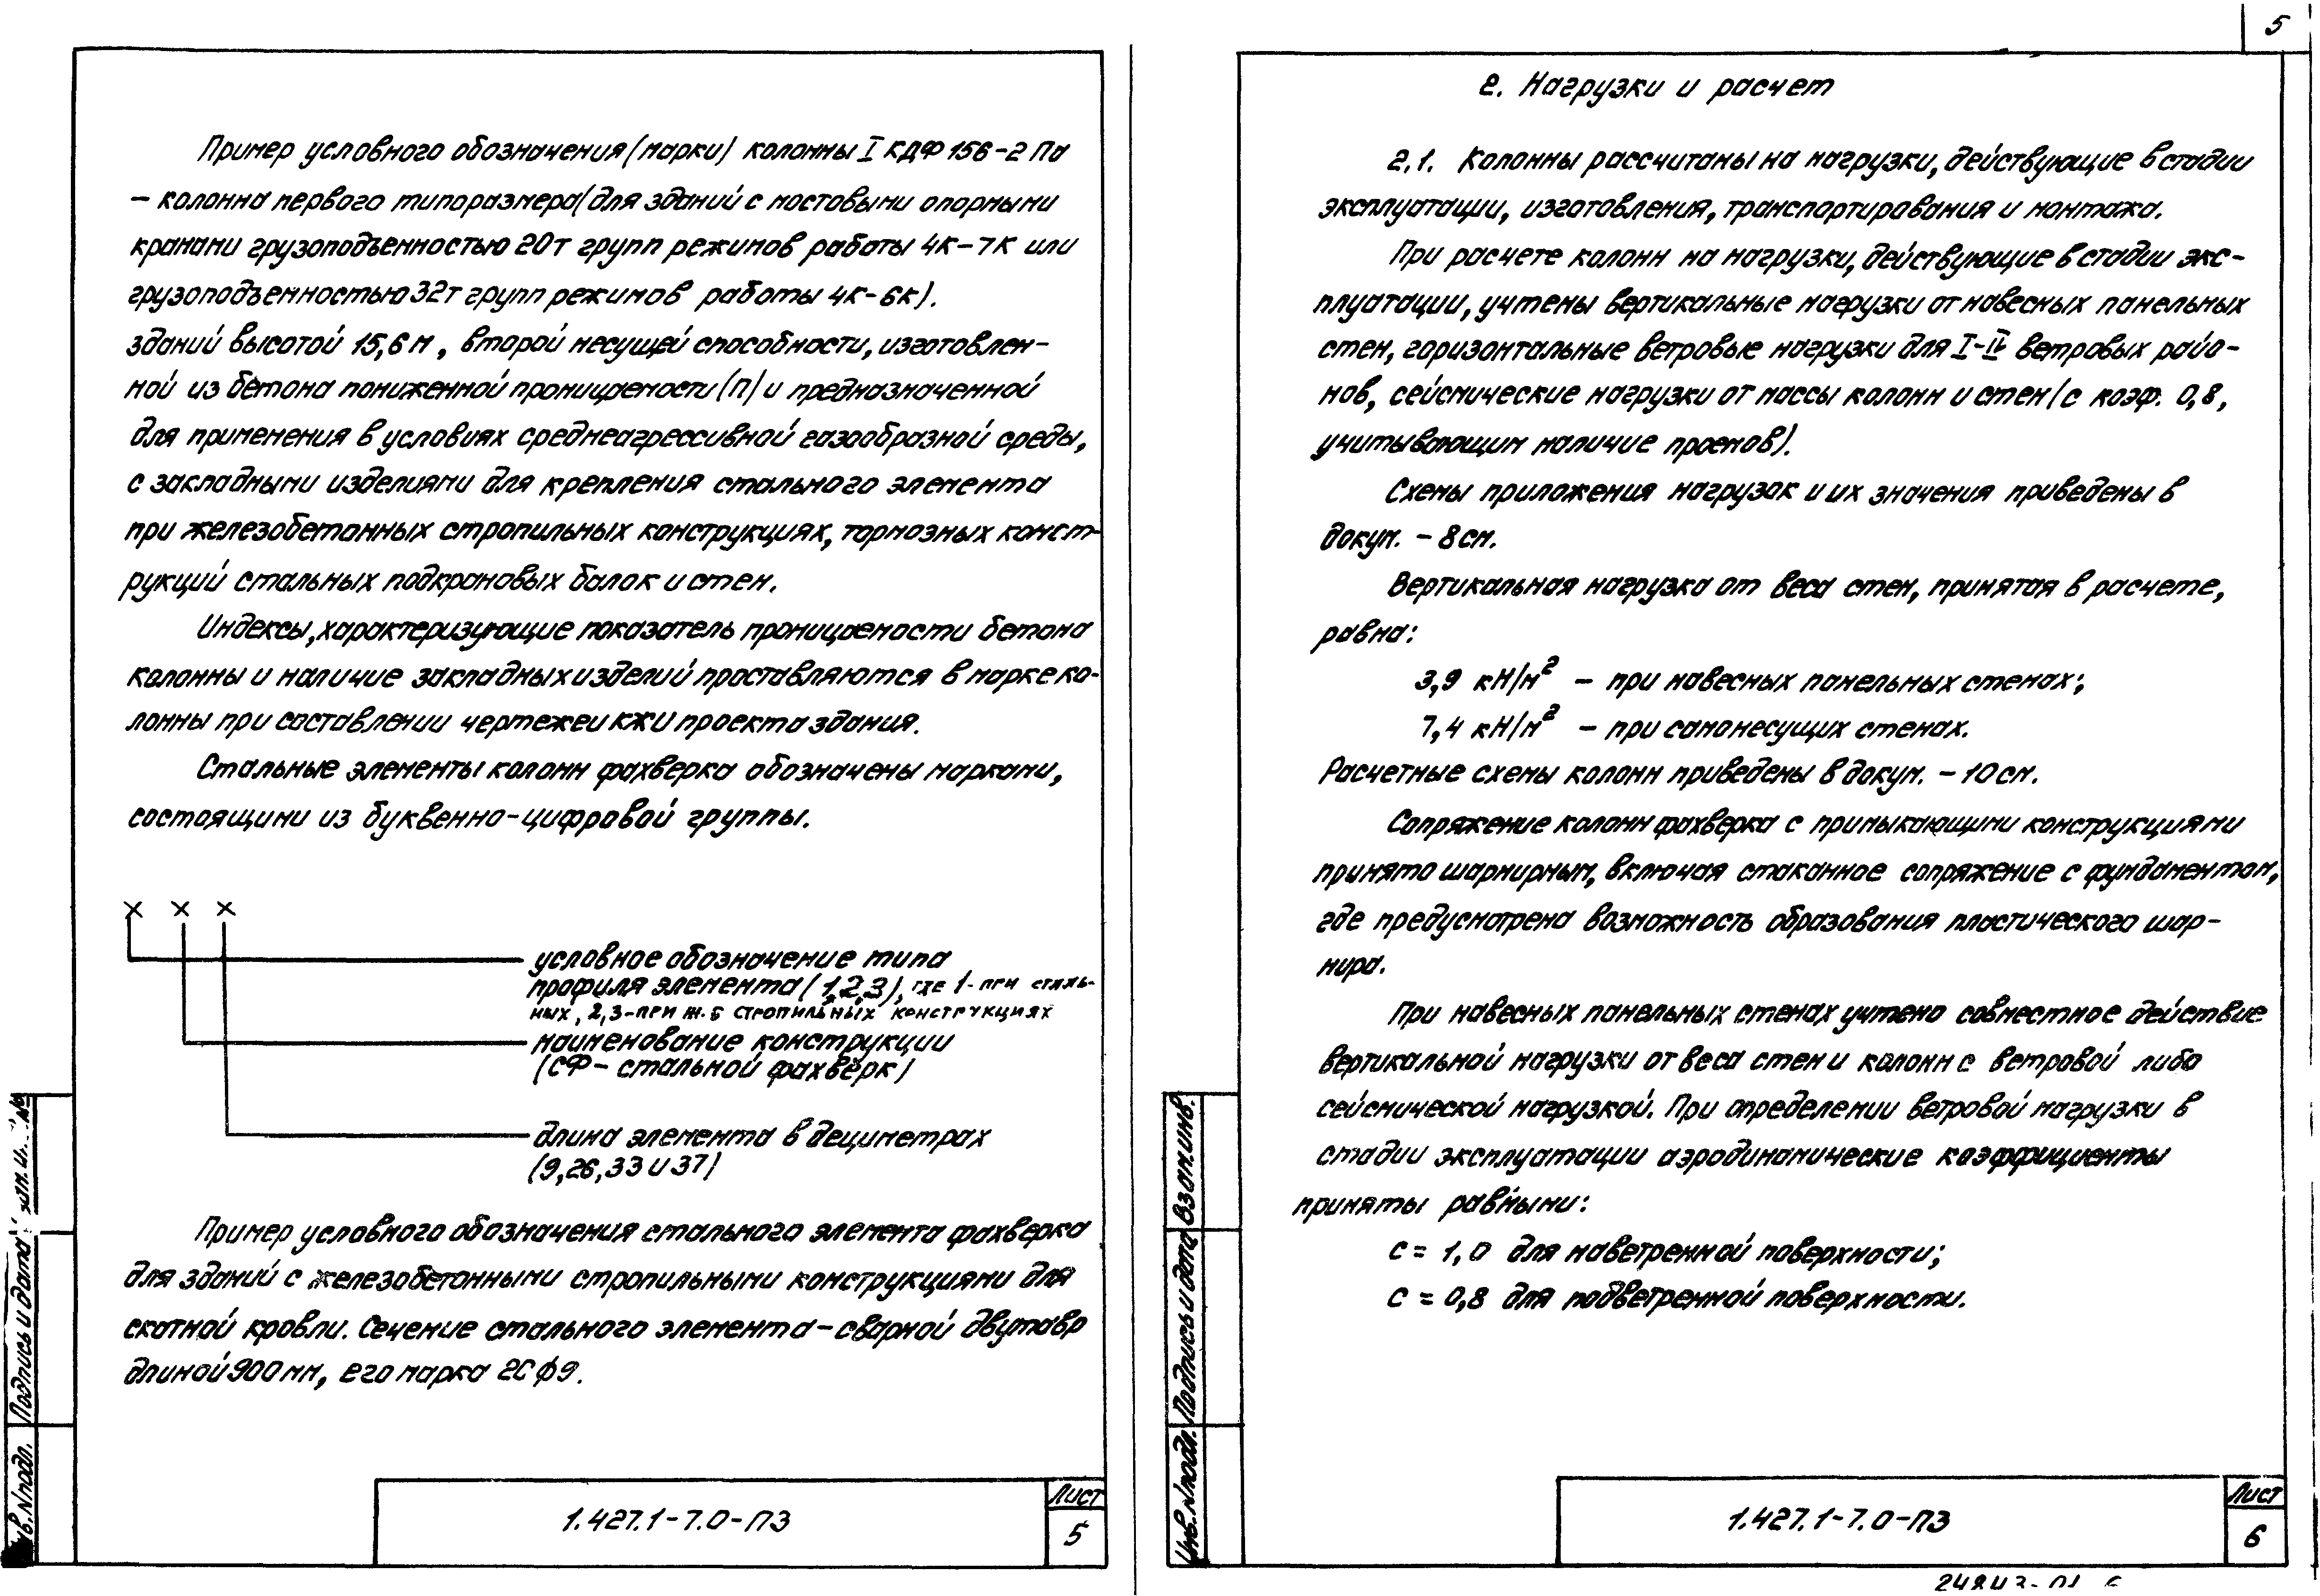 Пример условного обозначения (марки) колонны I КДФ 156-2 Па
— колонна первого типоразмера (для зданий с мостовыми опорными
кранами грузоподъемностью 20т групп режимов работы 4К-7К или
грузоподъемностью 32т групп режимов работы 4К-6К).
зданий высотой 15,6 м, второй несущей способности, изготовлен-
ной из бетона пониженной проницаемости (П) и предназначенной
для применения в условиях среднеагрессивной газообразной среды,
с закладными изделиями для крепления стального элемента
при железобетонных стропильных конструкциях, тормозных конст-
рукций стальных подкрановых балок и стен.
Индексы, характеризующие показатель проницаемости бетона
колонны и наличие закладных изделий проставляются в марке ко-
лонны при составлении чертежей КЖИ проекта здания.
Стальные элементы колонн фахверка обозначены марками,
состоящими из буквенно-цифровой группы.
х х х
условное обозначение типа
профиля элемента (1,2,3), где 1- при сталь-
ных, 2,3-при ж.б стропильных конструкциях
наименование конструкции
(СФ - стальной фахверк)
длина элемента в дециметрах
(9,26,33 и 37)
Пример условного обозначения стального элемента фахверка
для зданий с железобетонными стропильными конструкциями для
скатной кровли. Сечение стального элемента - сварной двутавр
длиной 900 мм, его марка 2СФ9.
Подпись и дата
Инв.N подл.
1.427.1-7.0-ПЗ
Лист
5
5
2. Нагрузки и расчет
2.1. Колонны рассчитаны на нагрузки, действующие в стадии
эксплуатации, изготовления, транспортирования и монтажа.
При расчете колонн на нагрузки, действующие в стадии экс-
плуатации, учтены вертикальные нагрузки от навесных панельных
стен, горизонтальные ветровые нагрузки для I-IV ветровых райо-
нов, сейсмические нагрузки от массы колонн и стен (с коэф. 0,8,
учитывающим наличие проемов).
Схемы приложения нагрузок и их значения приведены в
докум. - 8см.
Вертикальная нагрузка от веса стен, принятая в расчете,
равна:
3,9 кН/м² - при навесных панельных стенах;
7,4 кН/м² - при самонесущих стенах.
Расчетные схемы колонн приведены в докум. - 10 см.
Сопряжение колонн фахверка с примыкающими конструкциями
принято шарнирным, включая стаканное сопряжение с фундаментом,
где предусмотрена возможность образования пластического шар-
нира.
При навесных панельных стенах учтено совместное действие
вертикальной нагрузки от веса стен и колонн с ветровой либо
сейсмической нагрузкой. При определении ветровой нагрузки в
стадии эксплуатации аэродинамические коэффициенты
приняты равными:
с = 1,0 для наветренной поверхности;
с = 0,8 для подветренной поверхности.
Взам.инв.
Подпись и дата
Инв.N подл.
1.427.1-7.0-ПЗ
Лист
6